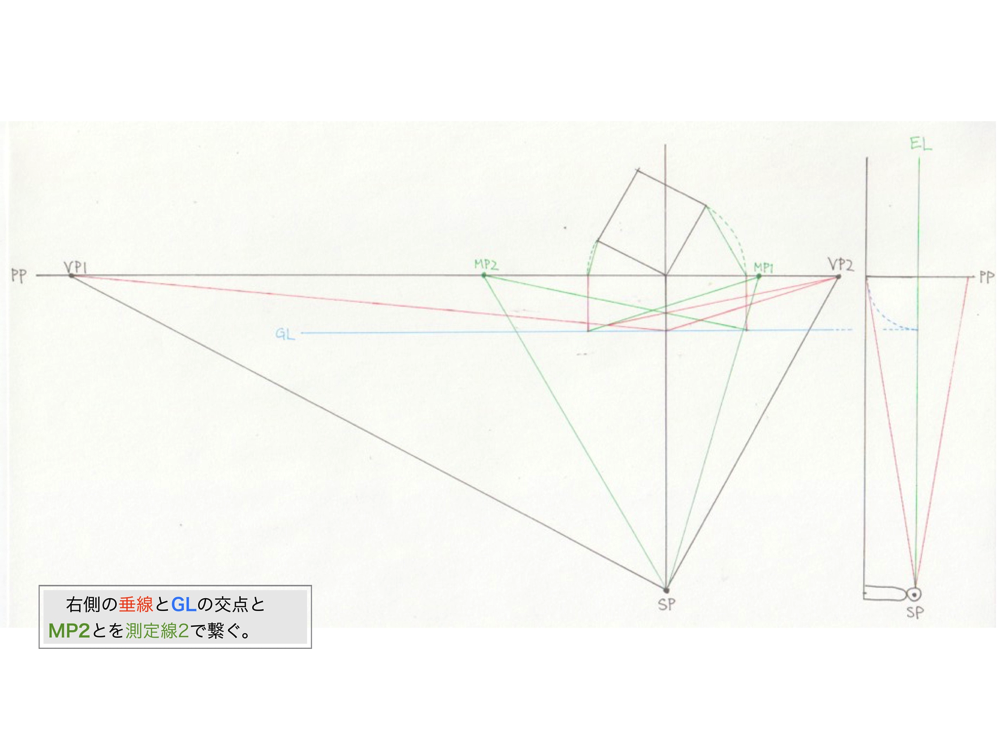 EL
PP
VP1
MP2
MP1
VP2
PP
GL
SP
SP
右側の垂線とGLの交点と
MP2とを測定線2で繋ぐ。